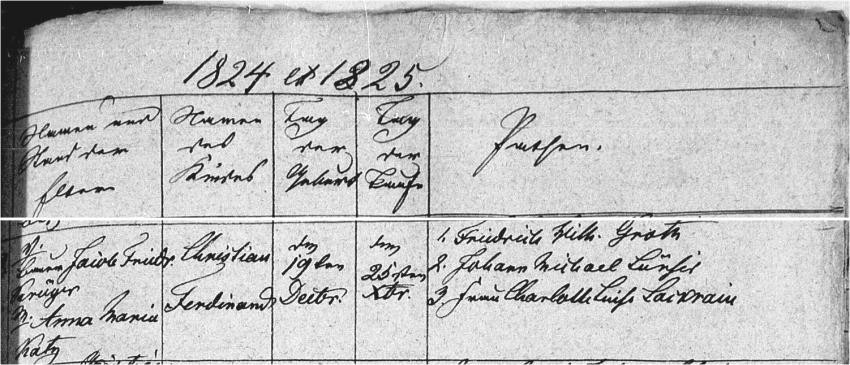 1824 et 1825.
Namen und
Stand der
Eltern
Namen
des
Kindes
Tag
der
Geburt
Tag
der
Taufe
Pathen.
V.
Bauer Jacob Friedr.
Krüger
M. Anna Maria
Katz
Christian
Ferdinand
den
19ten
Decbr.
den
25sten
Xbr.
1. Friedrich Wilh. Groth
2. Johann Michael
3. Frau Charlotte Luise